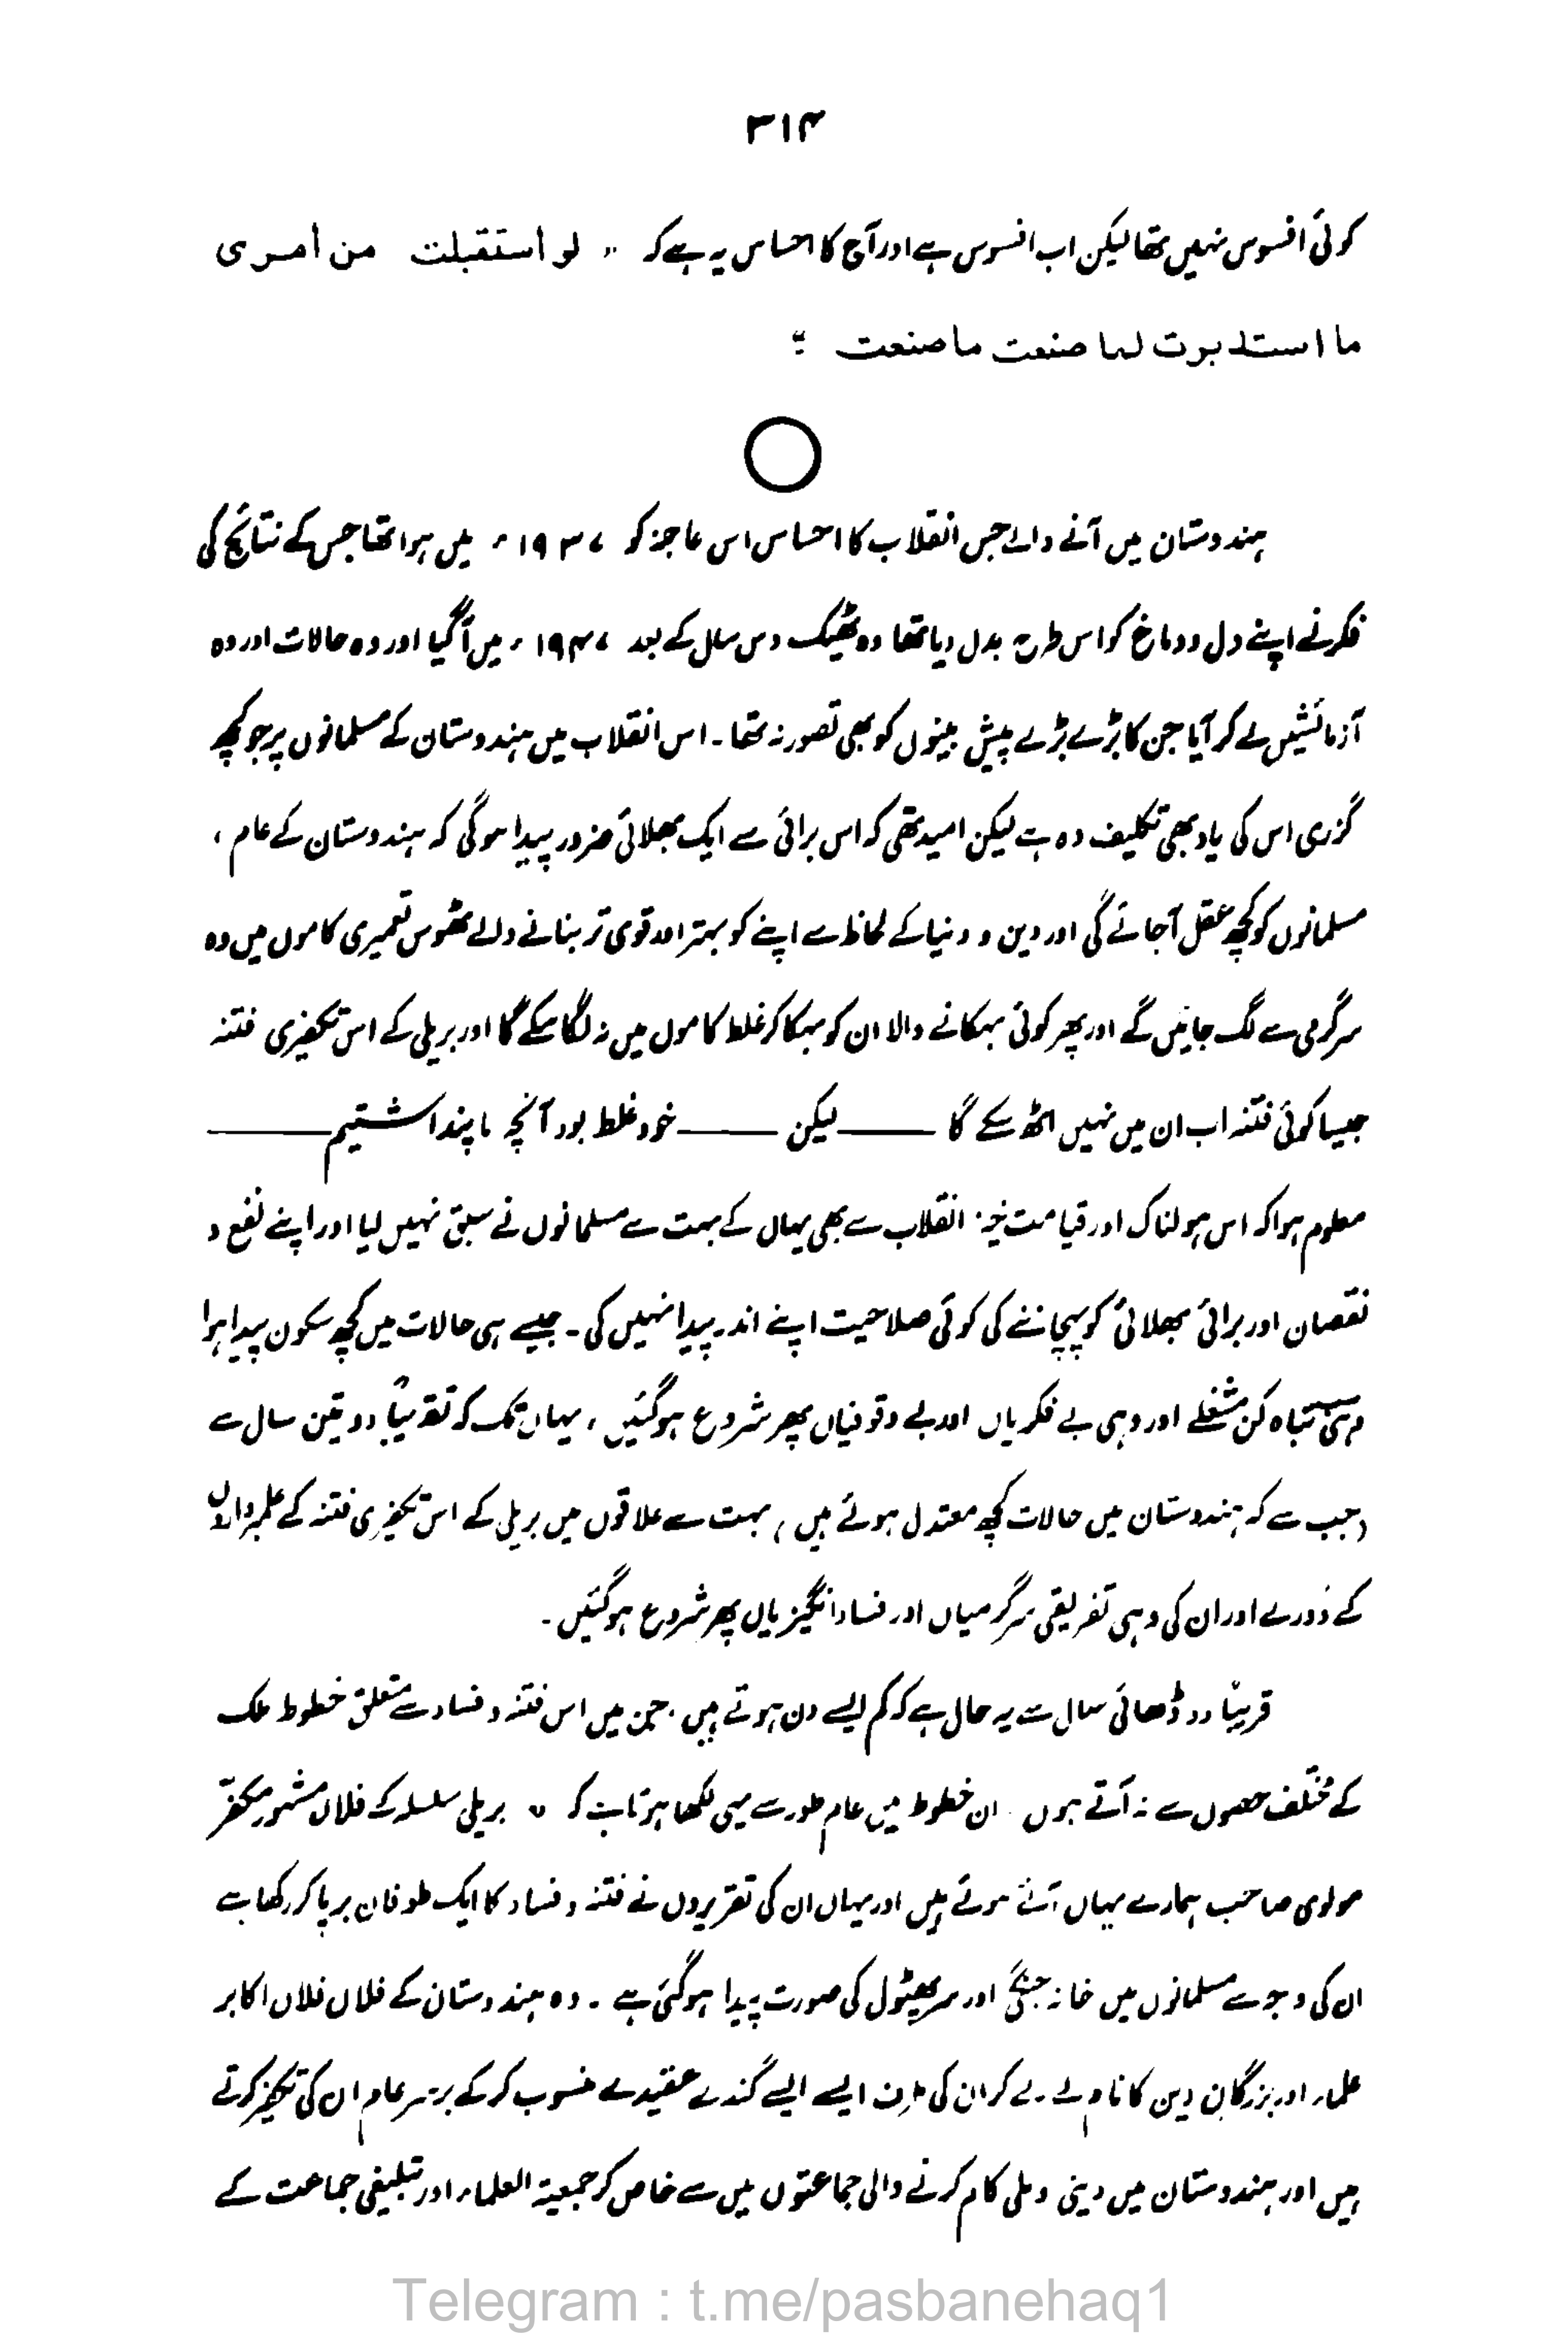 ۳۱۴
کوئی افسوس نہیں تھا لیکن اب افسوس ہے اور آج کا احساس یہ ہے کہ " لو أستقبلت من أمری
ما استدبرت لما صنعت ما صنعت "
ہندوستان میں آنے والے جس انقلاب کا احساس اس عاجز کو ۱۹۳۷ء میں ہوا تھا جس کے نتائج کی
فکر نے اپنے دل و دماغ کو اس طرح بدل دیا تھا وہ ٹھیک دس سال کے بعد ۱۹۴۷ء میں آگیا اور وہ حالات اور وہ
آزمائشیں لے کر آیا جن کا بڑے بڑے پیش بینوں کو بھی تصور نہ تھا ۔ اس انقلاب میں ہندوستان کے مسلمانوں پر جو کچھ
گزری اس کی یاد بھی تکلیف دہ ہے لیکن امید تھی کہ اس برائی سے ایک بھلائی ضرور پیدا ہوگی کہ ہندوستان کے عام ،
مسلمانوں کو کچھ عقل آجائے گی اور دین و دنیا کے لحاظ سے اپنے کو بہتر اور قوی تر بنانے والے ٹھوس تعمیری کاموں میں وہ
سرگرمی سے لگ جائیں گے اور پھر کوئی بہکانے والا ان کو بہکا کر غلط کاموں میں نہ لگا سکے گا اور بریلی کے اس تکفیری فتنہ
جیسا کوئی فتنہ اب ان میں نہیں اٹھ سکے گا ——— لیکن ——— خود غلط بود آنچہ ما پنداشتیم ———
معلوم ہوا کہ اس ہولناک اور قیامت خیز انقلاب سے بھی یہاں کے بہت سے مسلمانوں نے سبق نہیں لیا اور اپنے نفع و
نقصان اور برائی بھلائی کو پہچاننے کی کوئی صلاحیت اپنے اندر پیدا نہیں کی ۔ جیسے ہی حالات میں کچھ سکون پیدا ہوا
وہی تباہ کن مشغلے اور وہی بے فکریاں اور بے وقوفیاں پھر شروع ہوگئیں ، یہاں تک کہ تقریباً دو تین سال سے
(جب سے کہ ہندوستان میں حالات کچھ معتدل ہوئے ہیں ) بہت سے علاقوں میں بریلی کے اس تکفیری فتنہ کے علمبرداروں
کے دورے اور ان کی وہی تفریقی سرگرمیاں اور فساد انگیزیاں پھر شروع ہوگئیں ۔
قریباً دو ڈھائی سال سے یہ حال ہے کہ کم ایسے دن ہوتے ہیں جن میں اس فتنہ و فساد سے متعلق خطوط ملک
کے مختلف حصوں سے نہ آتے ہوں ان خطوط میں عام طور سے یہی لکھا ہوتا ہے کہ " بریلی سلسلہ کے فلاں مشہور مکفّر
مولوی صاحب ہمارے یہاں آئے ہوئے ہیں اور یہاں ان کی تقریروں نے فتنہ و فساد کا ایک طوفان برپا کر رکھا ہے
ان کی وجہ سے مسلمانوں میں خانہ جنگی اور سر پھٹول کی صورت پیدا ہوگئی ہے ۔ وہ ہندوستان کے فلاں فلاں اکابر
علماء اور بزرگان دین کا نام لے لے کر ان کی طرف ایسے ایسے گندے عقیدے منسوب کر کے برسر عام ان کی تکفیر کرتے
ہیں اور ہندوستان میں دینی و ملی کام کرنے والی جماعتوں میں سے خاص کر جمعیۃ العلماء اور تبلیغی جماعت کے
Telegram : t.me/pasbanehaq1